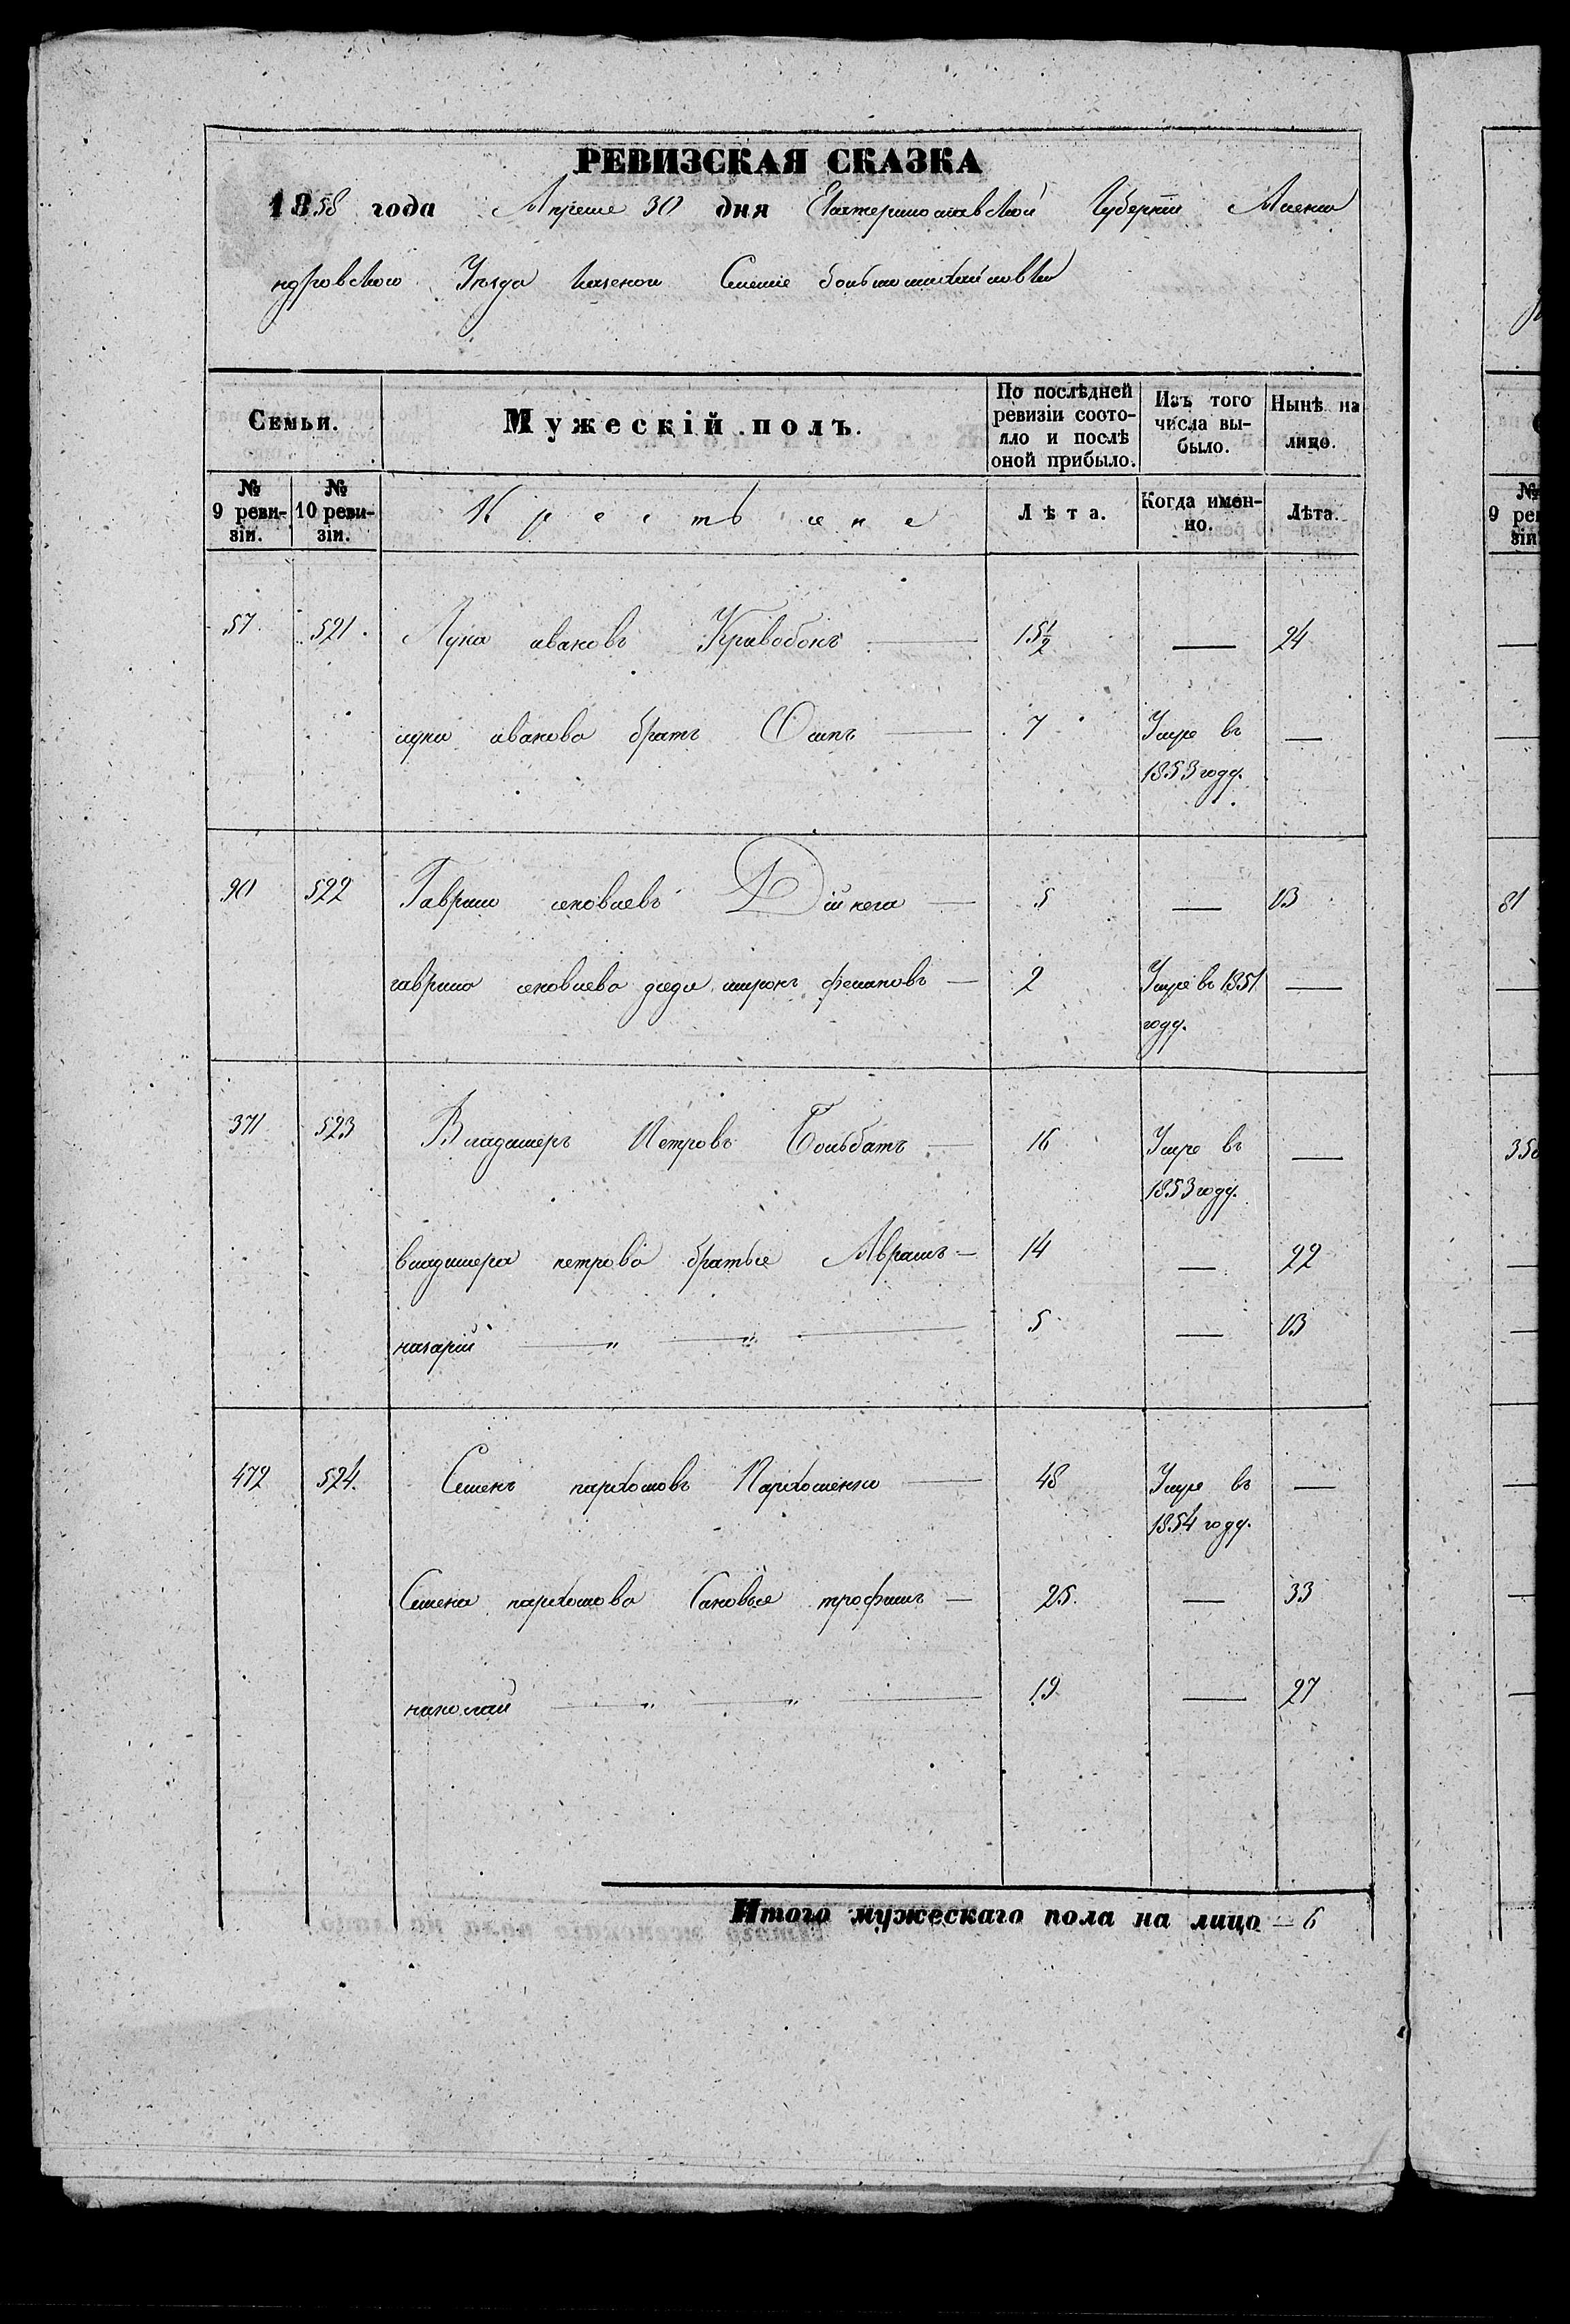 РЕВИЗСКАЯ СКАЗКА
1858 года Апреля 30 дня Екатеринославской Губернiи Алекса
ндровского Уѣзда казеной Селенiе большомихайловки
Семьи.
Мужескiй полъ.
По послѣдней ревизiи состо-яло и послѣ оной прибыло.
Изъ того числа вы-было.
Нынѣ на лицо.
№ 9 реви-зiи.
№ 10 реви-зiи.
Крестьяне
Лѣта.
Когда имен-но.
Лѣта.
57 521. Лука ивановъ Кривобокъ — 15½ — 24
луки иванова братъ Осипъ — 7 Умре въ —
1853 году.
90 522 Гаврило яковлевъ — 5 — 13
гаврила яковлева дядя миронъ — 2 Умре въ 1851 —
году.
371 523 Владимеръ Петровъ — 16 Умре въ —
1853 году.
владимера петрова братья Аврамъ — 14 — 22
назарiй — „ — „ — 5 — 13
472 524. Семенъ пархомовъ Пархоменко — 48 Умре въ —
1854 году.
Семена пархомова Сановья трофимъ — 25. — 33
николай — „ — „ — 19 — 27
Итого мужескаго пола на лицо — 6
№
9 рев
зiи
81
358